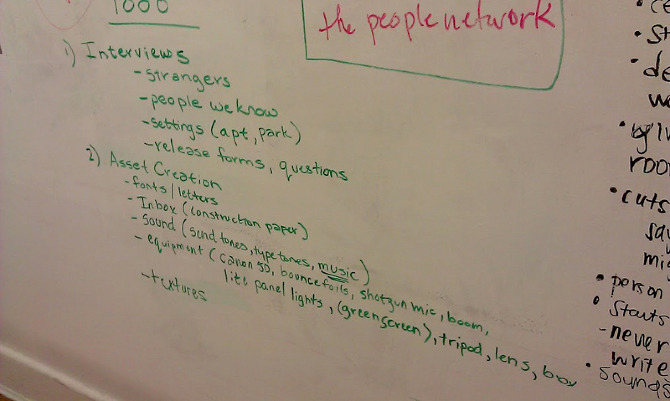 1000
the people network
1) Interviews
- strangers
- people we know
- settings (apt, park)
- release forms, questions
2) Asset Creation
- fonts/letters
- Inbox (construction paper)
- Sound (send tones, type tones, music)
- equipment (Canon 5D, bounce foils, shotgun mic, boom,
lite panel lights, (greenscreen), tripod, lens, box
- textures
• de
• cuts
• person
• starts
- never
write
• sounds